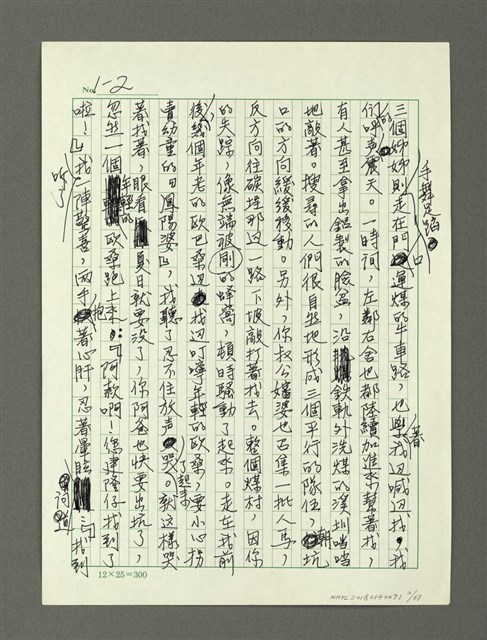 No. 1-2
三個姊姊則走在門口運煤的牛車路，也學著我邊喊邊找，我
們的呼声震天。一時间，左鄰右舍也都陸續加進來幫著找，
有人甚至拿出鋁製的臉盆，沿鉄軌外洗煤的溪圳噹噹
地敲著。搜尋的人們很自然地形成三個平行的隊伍，朝坑
口的方向緩緩移動。另外，你叔公嬸婆也召集一批人馬，
反方向往礦埕那边一路下坡敲打著找去。整個煤村，因你
的失蹤，像無端被刪的蜂窩，頓時騷動了起來。走在我前
後幾個年老的欧巴桑边找边叮嚀年轻的欧桑，要小心拐
賣幼童的「鳳陽婆」，我聽了忍不住放声哭了起來。就這樣哭
著找著，眼看夏日就要沒了，你阿爸也快要出坑了，
忽然一個年輕的欧桑跑上來：「阿款啊！您建隆仔找到了
啦！」我一陣驚喜，兩手抱著心肝，忍著暈眩，「找到
手舞足蹈
听了
12×25=300
NMTL20180140071